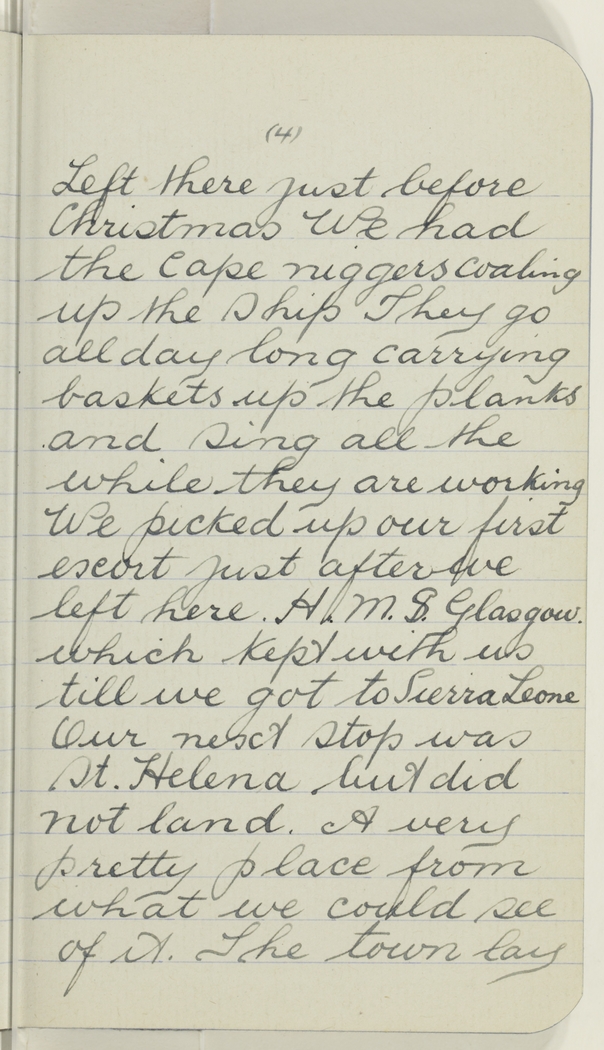 (4)
Left there just before
Christmas We had
the Cape niggers coaling
up the Ship They go
all day long carrying
baskets up the planks
and sing all the
while they are working
We picked up our first
escort just after we
left here. H.M.S. Glasgow.
which kept with us
till we got to Sierra Leone
Our next stop was
St. Helena but did
not land. A very
pretty place from
what we could see
of it. The town lay